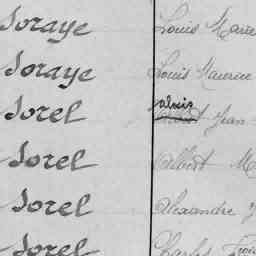 Soraye Louis Marie
Soraye Louis Maurice
Sorel alexis Jean
Sorel Albert M
Sorel Alexandre J
Sorel Charles Franç